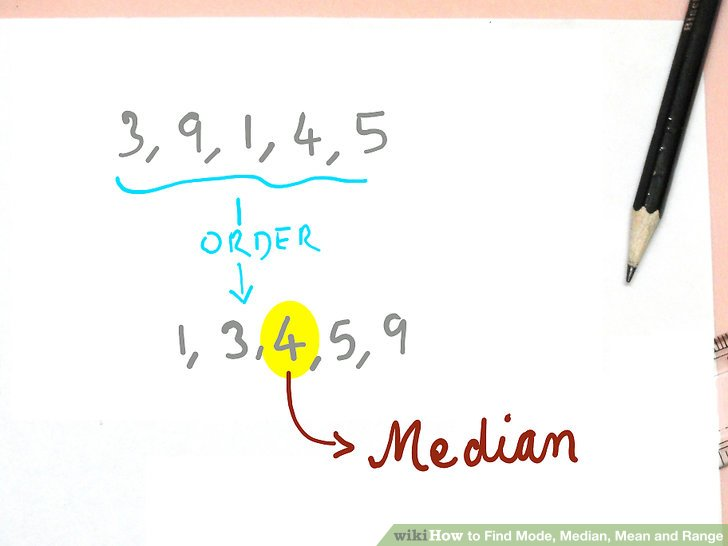 3, 9, 1, 4, 5
ORDER
1, 3, 4, 5, 9
Median
wikiHow to Find Mode, Median, Mean and Range